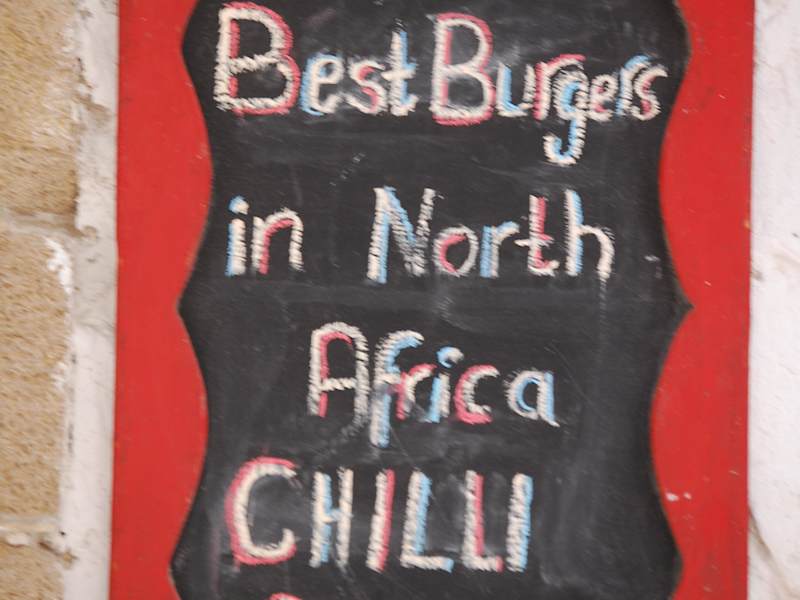 Best Burgers
in North
Africa
CHILLI